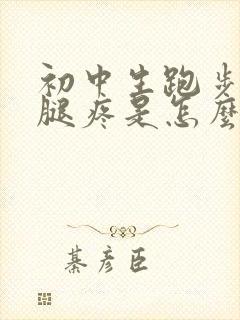 初中生跑步
腿疼是怎麼
綦彦臣